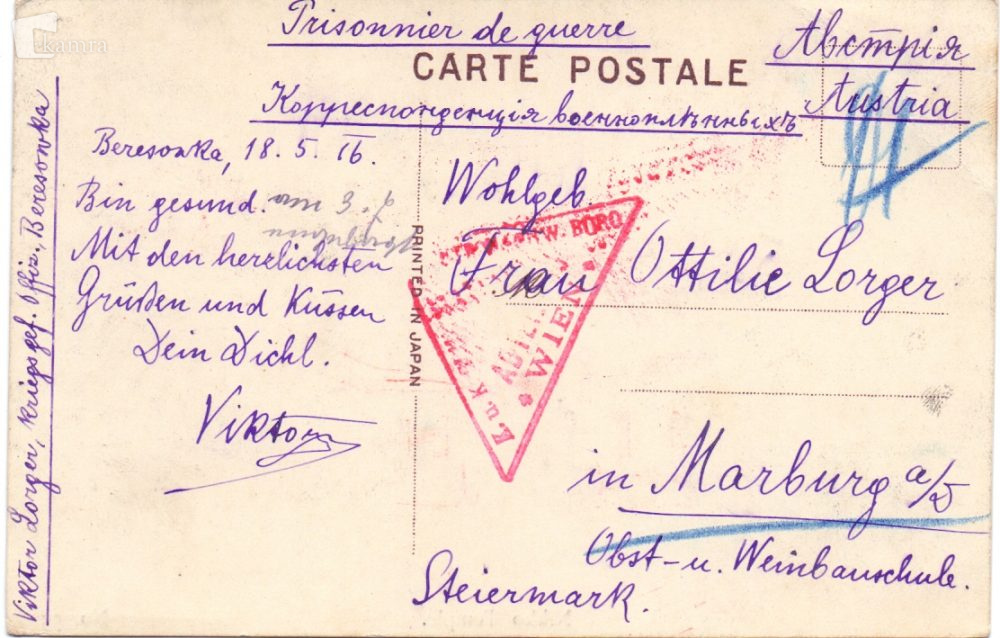 kamra
Prisonnier de guerre
CARTE POSTALE
Австрія
Austria
Корреспонденція военноплѣнныхъ
Beresowka, 18. 5. 16.
Bin gesund.
Mit den herzlichsten
Grüßen und Küssen
Dein Dichl.
Viktor
Viktor Lorger, kriegsgef. Offiz., Beresowka
PRINTED IN JAPAN
Wohlgeb.
Frau Ottilie Lorger
in Marburg a/D
Obst- u. Weinbauschule.
Steiermark.
K. u. K.
WIEN